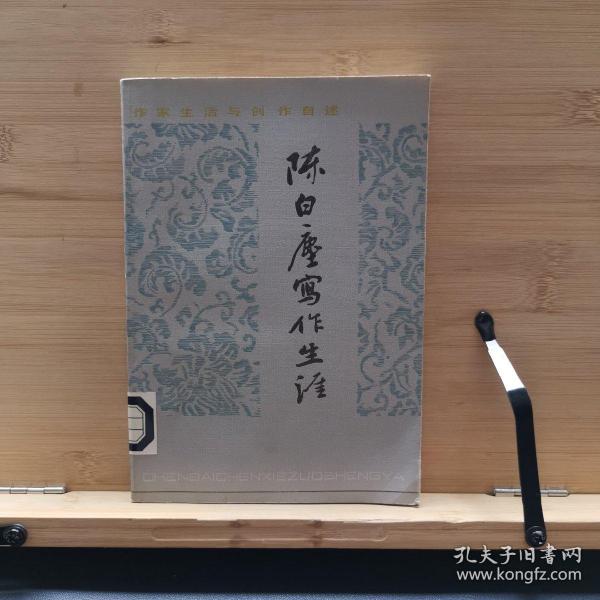 作家生活与创作自述
陈白塵寫作生涯
CHENBAICHENXIEZUOSHENGYA
孔夫子旧書网
www.kongfz.com